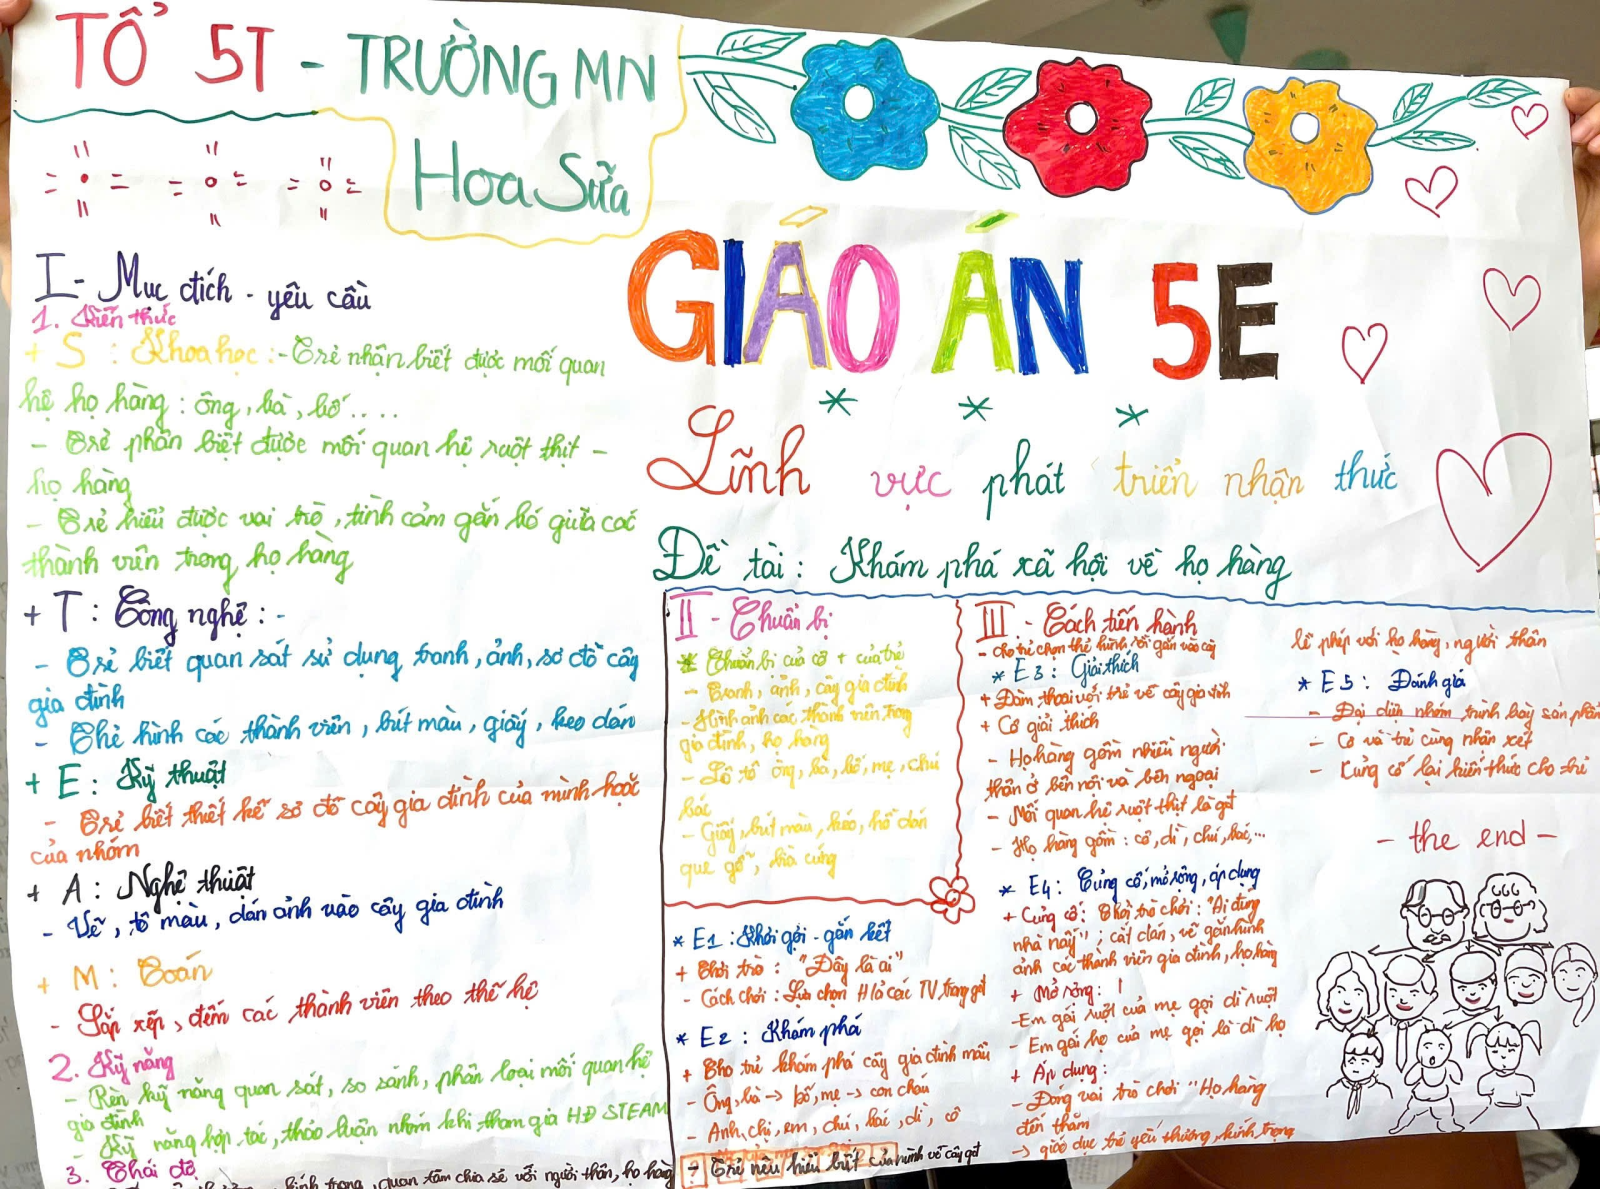 TỔ 5T - TRƯỜNG MN
Hoa Sữa
GIÁO ÁN 5E
Lĩnh vực phát triển nhận thức
Đề tài : Khám phá xã hội về họ hàng
I - Mục đích - yêu cầu
1. Kiến thức
+ S : Khoa học : - Trẻ nhận biết được mối quan
hệ họ hàng : ông, bà, bố....
- Trẻ phân biệt được mối quan hệ ruột thịt -
họ hàng
- Trẻ hiểu được vai trò, tình cảm gắn bó giữa các
thành viên trong họ hàng
+ T : Công nghệ : -
- Trẻ biết quan sát sử dụng tranh, ảnh, sơ đồ cây
gia đình
- Thẻ hình các thành viên, bút màu, giấy, keo dán
+ E : Kỹ thuật
- Trẻ biết thiết kế sơ đồ cây gia đình của mình hoặc
của nhóm
+ A : Nghệ thuật
- Vẽ, tô màu, dán ảnh vào cây gia đình
+ M : Toán
- Sắp xếp, đếm các thành viên theo thế hệ
2. Kỹ năng
- Rèn kỹ năng quan sát, so sánh, phân loại mối quan hệ
gia đình
- Kỹ năng hợp tác, thảo luận nhóm khi tham gia HĐ STEAM
3. Thái độ
kính trọng, quan tâm chia sẻ với người thân, họ hàng
II - Chuẩn bị
* Chuẩn bị của cô + của trẻ
- Tranh, ảnh, cây gia đình
- Hình ảnh các thành viên trong
gia đình, họ hàng
- Lô tô ông, bà, bố, mẹ, chú
bác
- Giấy, bút màu, kéo, hồ dán
que gỗ, bìa cứng
* E1 : Khơi gợi - gắn kết
+ Chơi trò : "Đây là ai"
- Cách chơi : Lựa chọn H/ả các TV trong gđ
* E2 : Khám phá
+ Cho trẻ khám phá cây gia đình mẫu
- Ông, bà -> bố, mẹ -> con cháu
- Anh, chị, em, chú, bác, dì, cô
-> Trẻ nêu hiểu biết của mình về cây gđ
III - Cách tiến hành
- Cho trẻ chọn thẻ hình rồi gắn vào cây
* E3 : Giải thích
+ Đàm thoại với trẻ về cây gia đình
+ Cô giải thích
- Họ hàng gồm nhiều người
thân ở bên nội và bên ngoại
- Mối quan hệ ruột thịt là gđ
- Họ hàng gồm : cô, dì, chú, bác,...
* E4 : Củng cố, mở rộng, áp dụng
+ Củng cố : Chơi trò chơi : "Ai đúng
nhà nấy" ; cắt dán, vẽ gắn hình
ảnh các thành viên gia đình, họ hàng
+ Mở rộng : !
- Em gái ruột của mẹ gọi dì ruột
- Em gái họ của mẹ gọi là dì họ
+ Áp dụng :
- Đóng vai trò chơi "Họ hàng
đến thăm
-> giáo dục trẻ yêu thương, kính trọng
lễ phép với họ hàng, người thân
* E5 : Đánh giá
- Đại diện nhóm trình bày sản phẩm
- Cô và trẻ cùng nhận xét
- Củng cố lại kiến thức cho trẻ
- the end -